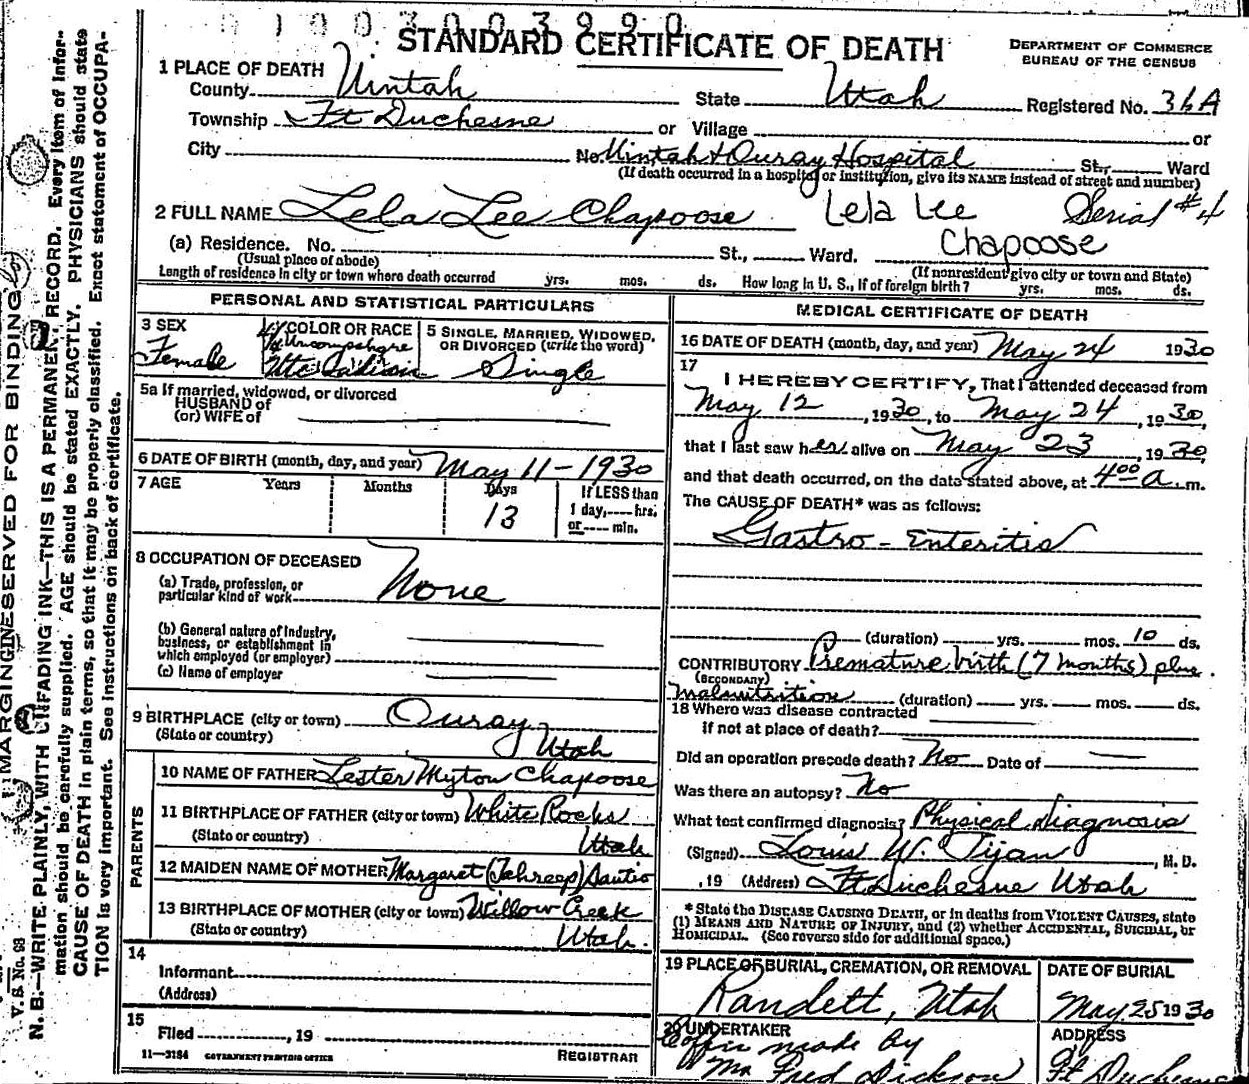 0 1 0 0 3 0 0 3 9 9 0
STANDARD CERTIFICATE OF DEATH
DEPARTMENT OF COMMERCE
BUREAU OF THE CENSUS
1 PLACE OF DEATH
County Uintah State Utah Registered No. 36A
Township Ft Duchesne or Village or
City No. Uintah & Ouray Hospital St., Ward
(If death occurred in a hospital or institution, give its NAME instead of street and number)
2 FULL NAME Lela Lee Chapoose Lela Lee Serial #4
Chapoose
(a) Residence. No. St., Ward.
(Usual place of abode) (If nonresident give city or town and State)
Length of residence in city or town where death occurred yrs. mos. ds. How long in U. S., if of foreign birth? yrs. mos. ds.
PERSONAL AND STATISTICAL PARTICULARS
3 SEX
Female
4 COLOR OR RACE
Uncompahgre
Ute Indian
5 SINGLE, MARRIED, WIDOWED,
OR DIVORCED (write the word)
Single
5a If married, widowed, or divorced
HUSBAND of
(or) WIFE of
6 DATE OF BIRTH (month, day, and year) May 11-1930
7 AGE Years Months Days If LESS than
13 1 day, hrs.
or min.
8 OCCUPATION OF DECEASED
(a) Trade, profession, or
particular kind of work None
(b) General nature of industry,
business, or establishment in
which employed (or employer)
(c) Name of employer
9 BIRTHPLACE (city or town) Ouray
(State or country) Utah
PARENTS
10 NAME OF FATHER Lester Myton Chapoose
11 BIRTHPLACE OF FATHER (city or town) White Rocks
(State or country) Utah
12 MAIDEN NAME OF MOTHER Margaret (Tahreep)
13 BIRTHPLACE OF MOTHER (city or town) Willow Creek
(State or country) Utah.
14
Informant
(Address)
15
Filed , 19
REGISTRAR
11—3184 GOVERNMENT PRINTING OFFICE
MEDICAL CERTIFICATE OF DEATH
16 DATE OF DEATH (month, day, and year) May 24 1930
17
I HEREBY CERTIFY, That I attended deceased from
May 12, 1930, to May 24, 1930,
that I last saw her alive on May 23, 1930,
and that death occurred, on the date stated above, at 4 00 a. m.
The CAUSE OF DEATH* was as follows:
Gastro-Enteritis
(duration) yrs. mos. 10 ds.
CONTRIBUTORY Premature birth (7 months) plus
(SECONDARY)
malnutrition (duration) yrs. mos. ds.
18 Where was disease contracted
if not at place of death?
Did an operation precede death? No Date of
Was there an autopsy? No
What test confirmed diagnosis? Physical Diagnosis
(Signed) Louis W. Tijan, M. D.
, 19 (Address) Ft Duchesne Utah
* State the DISEASE CAUSING DEATH, or in deaths from VIOLENT CAUSES, state
(1) MEANS AND NATURE OF INJURY, and (2) whether ACCIDENTAL, SUICIDAL, or
HOMICIDAL. (See reverse side for additional space.)
19 PLACE OF BURIAL, CREMATION, OR REMOVAL
Randett, Utah
DATE OF BURIAL
May 25 1930
20 UNDERTAKER
Coffin made by
Mr Fred Dickson
ADDRESS
Ft Duchesne
MARGIN RESERVED FOR BINDING
V. S. No. 98
N. B.—WRITE PLAINLY, WITH UNFADING INK—THIS IS A PERMANENT RECORD. Every item of infor-
mation should be carefully supplied. AGE should be stated EXACTLY. PHYSICIANS should state
CAUSE OF DEATH in plain terms, so that it may be properly classified. Exact statement of OCCUPA-
TION is very important. See instructions on back of certificate.